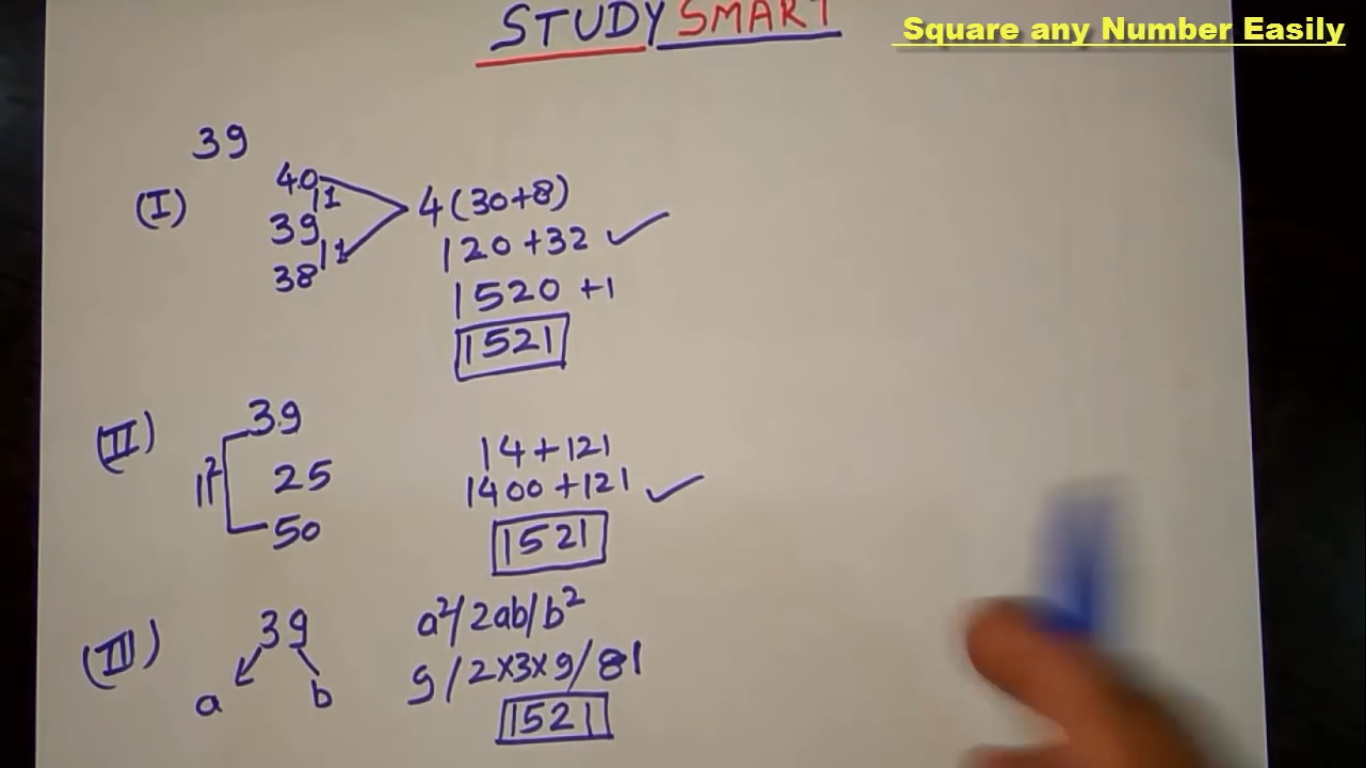 STUDY SMART
Square any Number Easily
39
(I)
40
11
39
11
38
4(30+8)
120+32 ✓
1520 +1
1521
(II)
39
11²
25
50
14+121
1400+121 ✓
1521
(III)
39
a b
a²/2ab/b²
9/2×3×9/81
1521